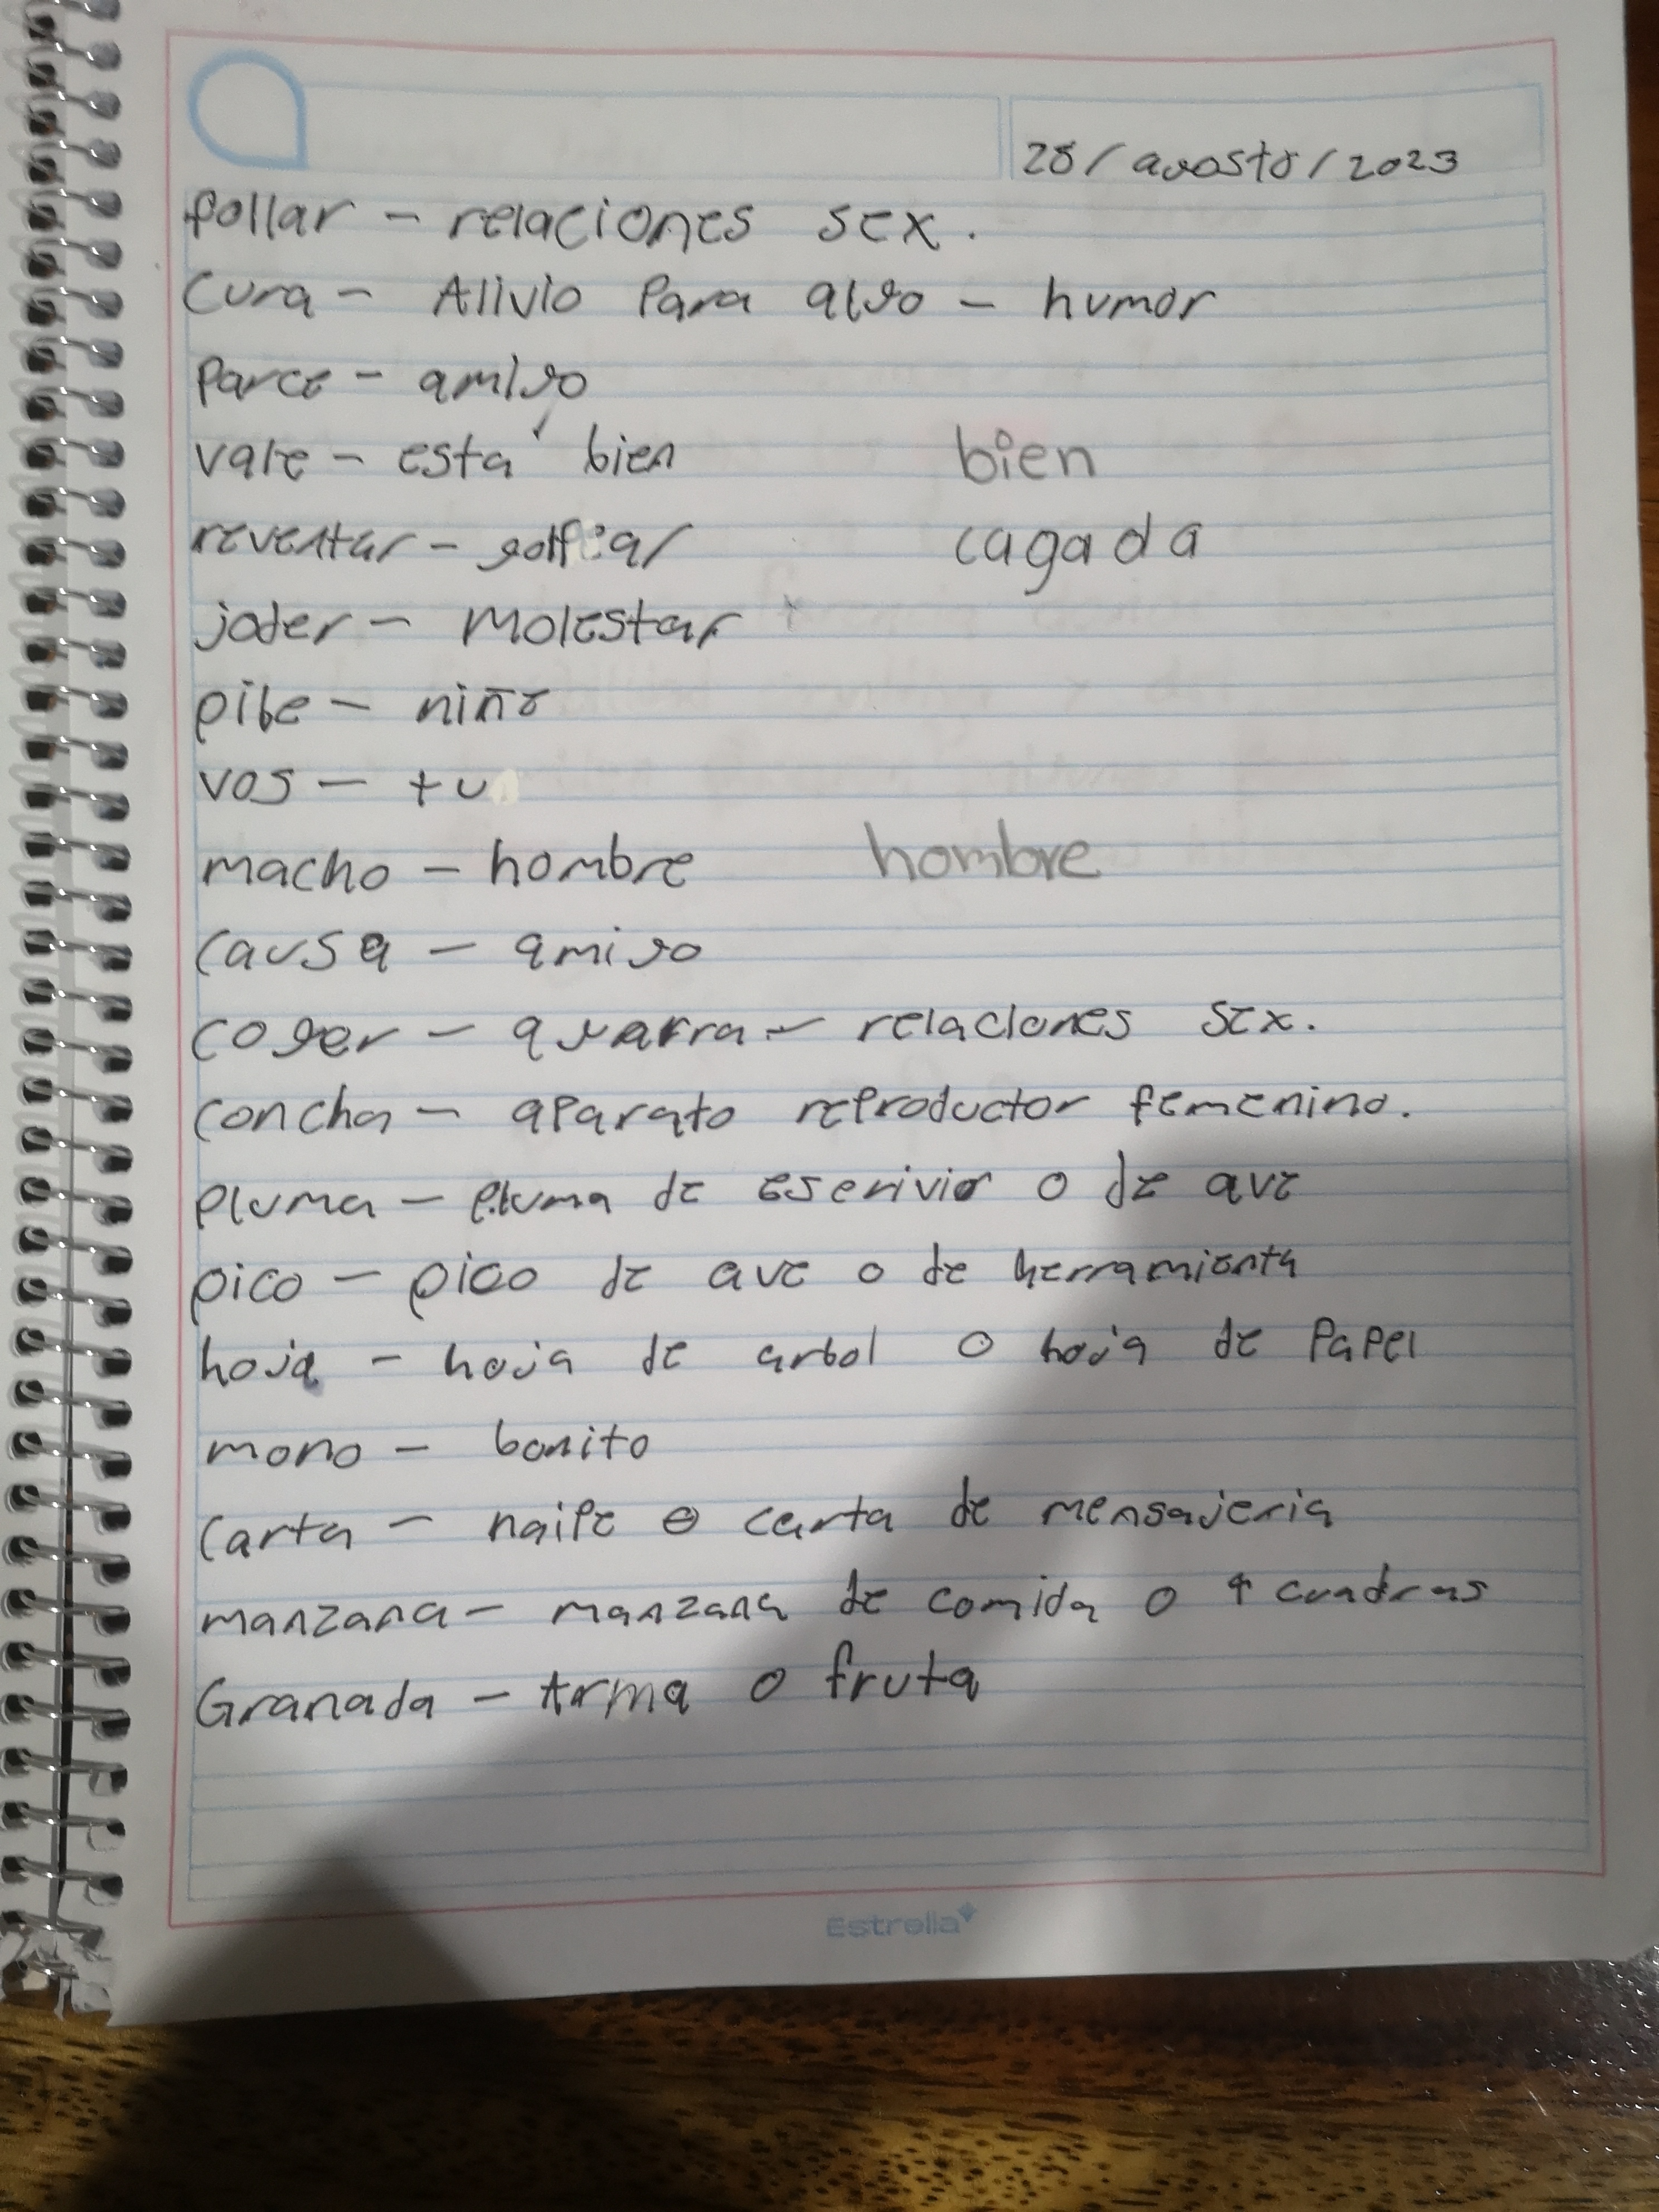 28/agosto/2023
follar - relaciones sex.
Cura - Alivio Para algo - humor
Parce - amigo
vale - está bien bien
reventar - golpear cagada
joder - Molestar
pibe - niño
vos - tu
macho - hombre hombre
causa - amigo
coger - agarrar - relaciones sex.
concha - aparato reproductor femenino.
pluma - pluma de escrivir o de ave
pico - pico de ave o de herramienta
hoja - hoja de arbol o hoja de Papel
mono - bonito
Carta - naipe o carta de mensajeria
manzana - manzana de comida o 4 cuadras
Granada - Arma o fruta
Estrella